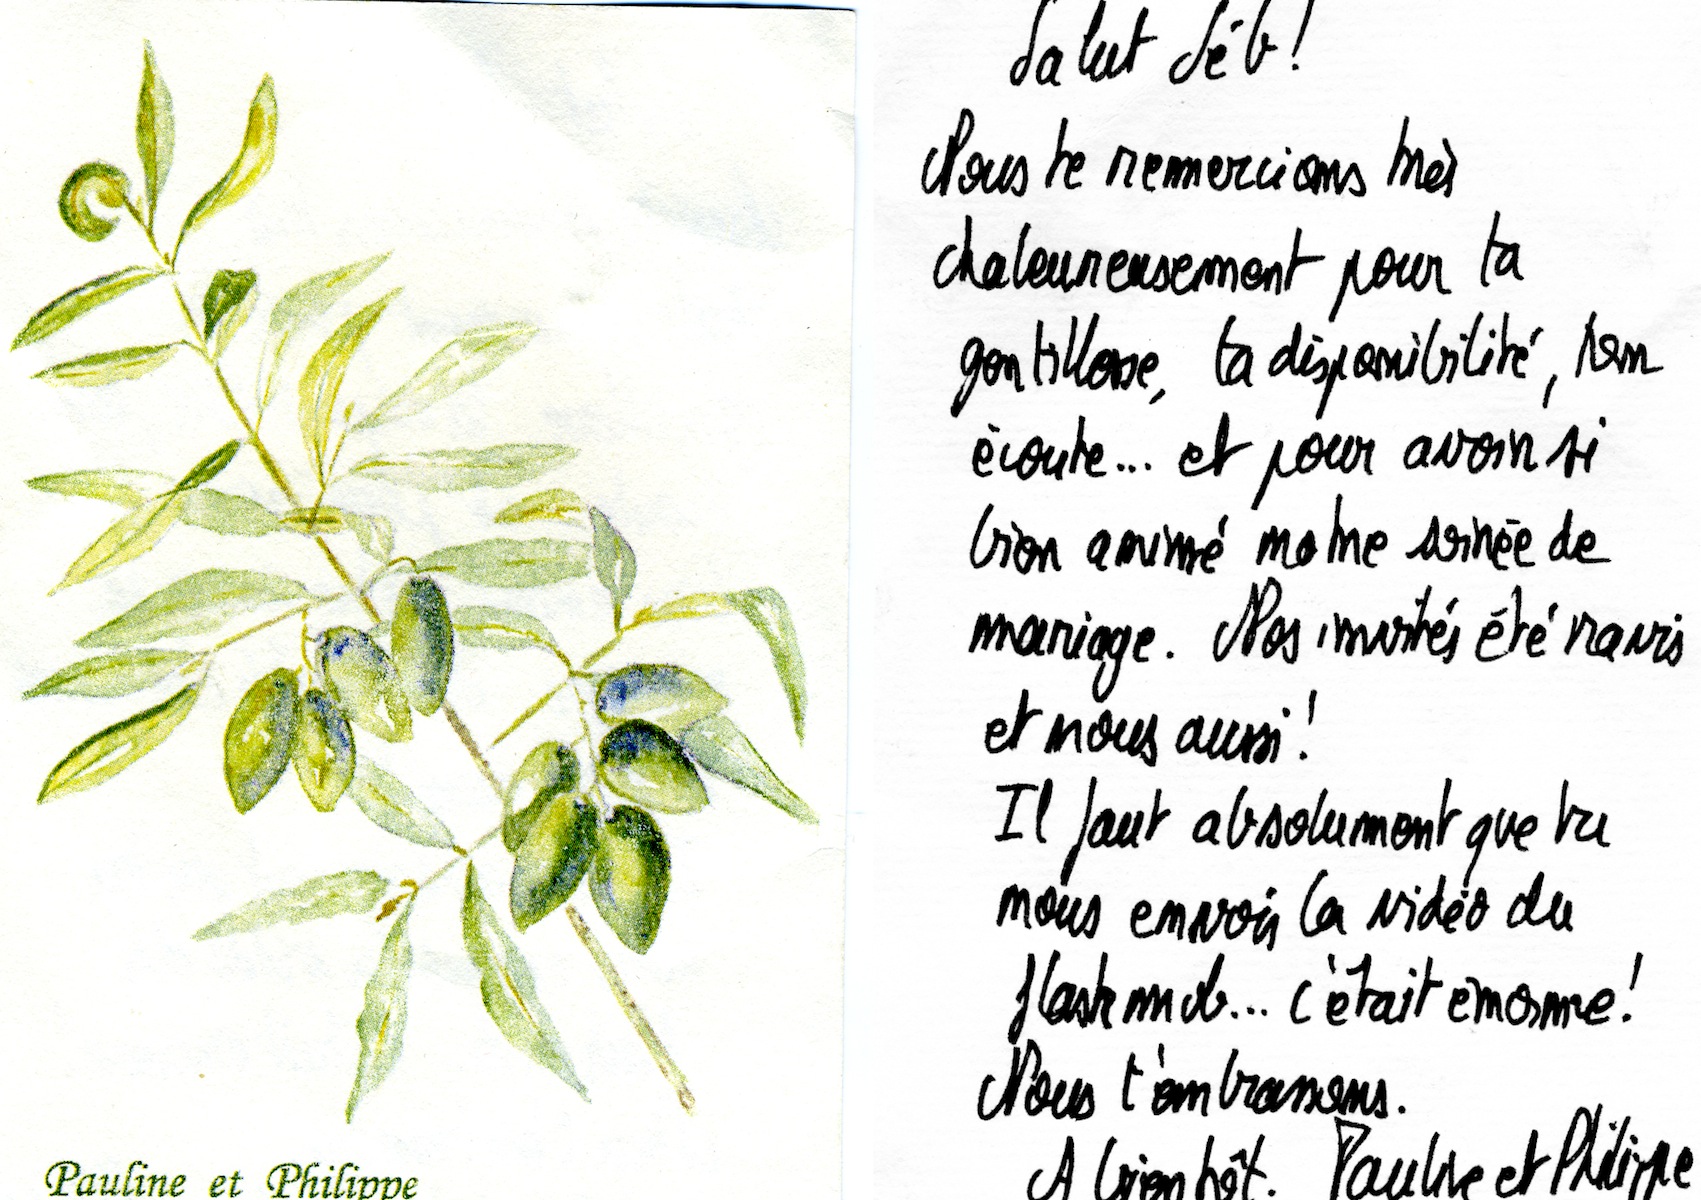 Pauline et Philippe
Salut Séb!
Nous te remercions très
chaleureusement pour ta
gentillesse, ta disponibilité, ton
écoute... et pour avoir si
bien animé notre soirée de
mariage. Nos invités été ravis
et nous aussi!
Il faut absolument que tu
nous envois la vidéo du
flashmob... c'était énorme!
Nous t'embrassons.
A bientôt. Pauline et Philippe